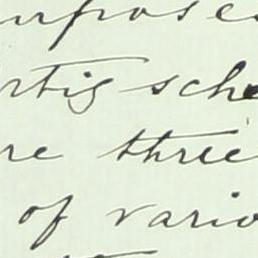 urposes
rtig sche
re three
of vario